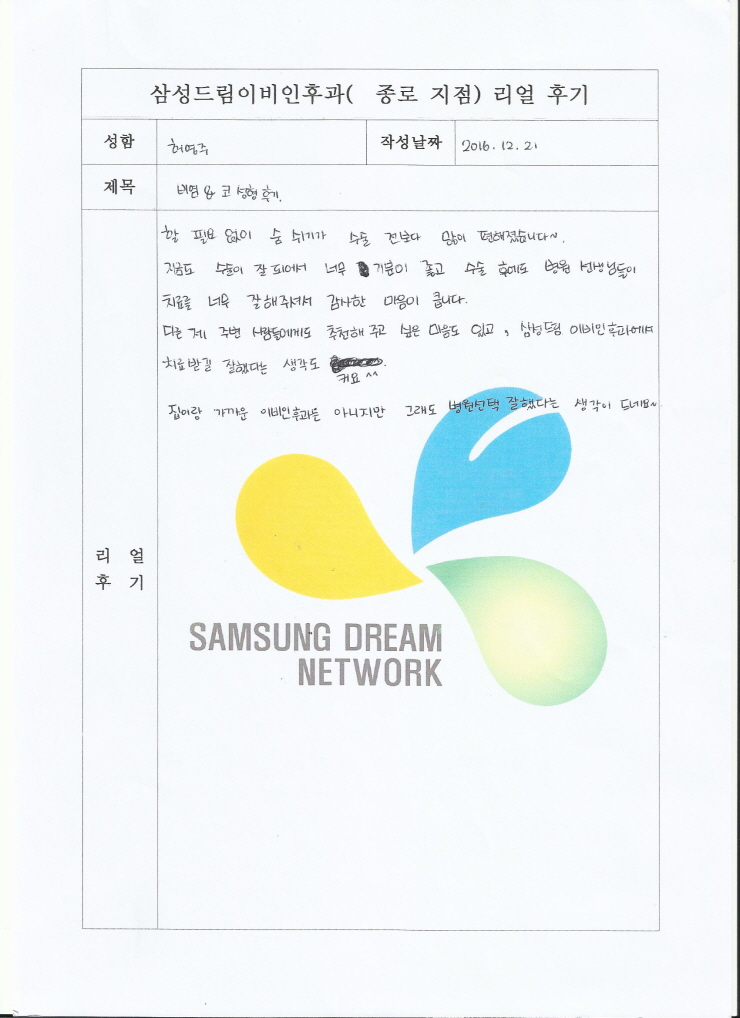 삼성드림이비인후과( 종로 지점) 리얼 후기
성함 허영주 작성날짜 2016. 12. 21
제목 비염 & 코 성형 후기.
할 필요 없이 숨 쉬기가 수술 전보다 많이 편해졌습니다~.
지금도 수술이 잘 되어서 너무 기분이 좋고 수술 후에도 병원 선생님들이
치료를 너무 잘 해주셔서 감사한 마음이 큽니다.
다른 제 주변 사람들에게도 추천해 주고 싶은 마음도 있고, 삼성드림 이비인후과에서
치료받길 잘했다는 생각도 .
커요 ^^
집이랑 가까운 이비인후과는 아니지만 그래도 병원선택 잘했다는 생각이 드네요~
리 얼
후 기
SAMSUNG DREAM
NETWORK